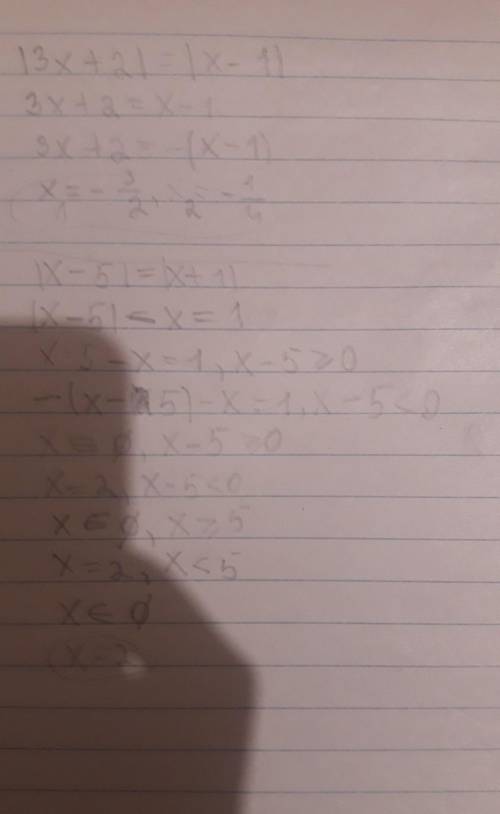 |3x+2|=|x-1|
3x+2=x-1
3x+2=-(x-1)
x₁=-3/2, ₂=-1/4
|x-5|=|x+1|
|x-5|-x=1
x-5-x=1, x-5≥0
-(x-5)-x=1, x-5<0
x∈∅, x-5≥0
x=2, x-5<0
x∈∅, x≥5
x=2, x<5
x∈∅
x=2